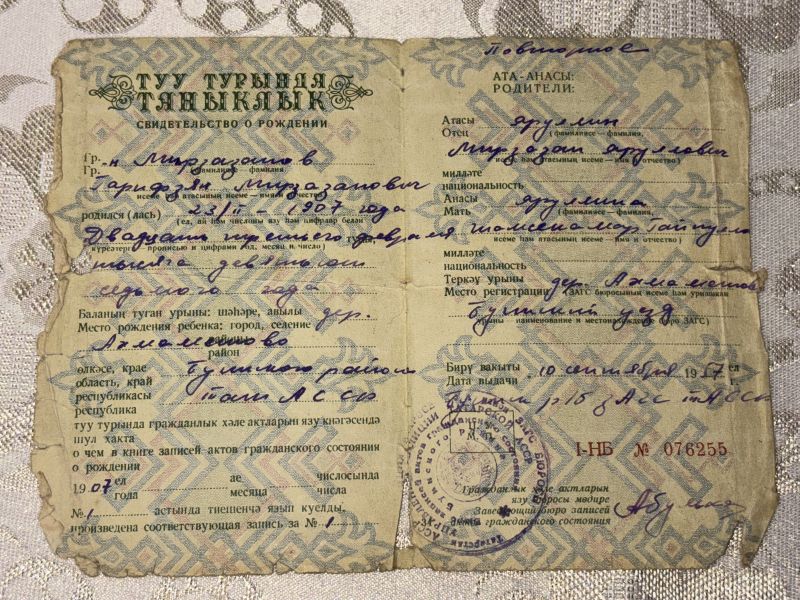 ТУУ ТУРЫНДА
ТАНЫКЛЫК
СВИДЕТЕЛЬСТВО О РОЖДЕНИИ
Гр.-н Мирзазанов
Гр. фамилиясе — фамилия
Гарифзян Мирзазанович
исеме һәм атасының исеме — имя и отчество
родился (лась) 23/II 1907 года
(ел, ай һәм числоны язу һәм цифрлар белән
Двадцать третьего февраля
күрсәтергә прописью и цифрами год, месяц и число)
тысяча девятьсот
седьмого года
Баланың туган урыны: шәһәре, авылы дер.
Место рождения ребенка: город, селение
Ахмаметово
район
өлкәсе, крае Буинского района
область, край
республикасы ТатАССР
республика
туу турында гражданлык хәле актларын язу кнәгәсендә
шул хакта
о чем в книге записей актов гражданского состояния
о рождении
1907 ел ае числосында
года месяца числа
№ 1 астында тиешенчә язып куелды.
произведена соответствующая запись за № 1
Повторное
АТА-АНАСЫ:
РОДИТЕЛИ:
Атасы Яруллин
Отец (фамилиясе — фамилия,
Мирзазан Яруллович
исеме һәм атасының исеме — имя и отчество)
милләте
национальность
Анасы Яруллина
Мать (фамилиясе — фамилия,
исеме һәм атасының исеме — имя и отчество)
милләте
национальность
Теркәү урыны дер. Ахмаметово
Место регистрации (ЗАГС бюросының исеме һәм урнашкан
Буинский уезд
урыны наименование и местонахождение бюро ЗАГС)
Бирү вакыты 10 сентября 1957 ел
Дата выдачи г.
р/б ЗАГС ТАССР
I-НБ № 076255
Гражданлык хәле актларын
язу бюросы мөдире
Заведующий бюро записей
актов гражданского состояния